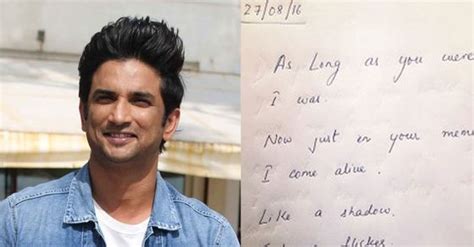 27/08/16
As Long as you were
I was.
Now just in your
I come alive.
Like a shadow.
flicker